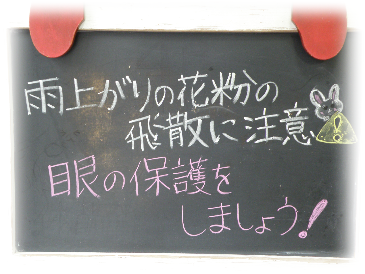 雨上がりの花粉の
飛散に注意
眼の保護を
しましょう!